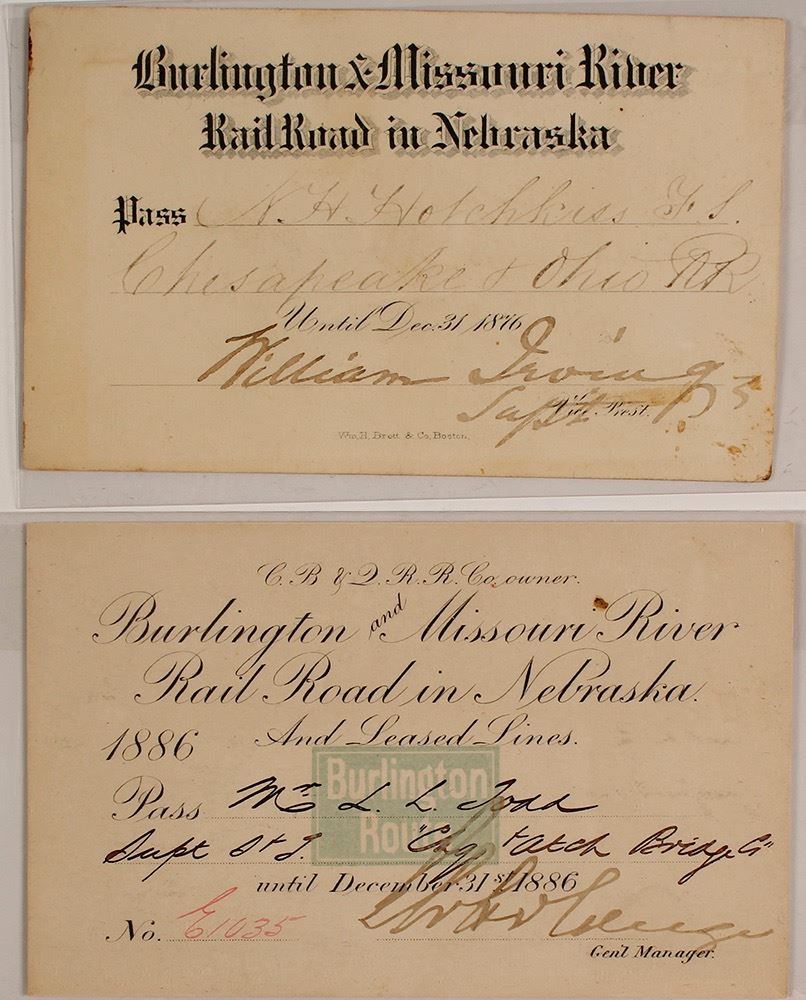 Burlington & Missouri River
Rail Road in Nebraska
Pass N. H. Hotchkiss
Chesapeake & Ohio RR
Until Dec. 31 1876
William Irving
Supt Vice Prest.
Wm. H. Brett & Co, Boston.
C. B & Q. R. R. Co, owner.
Burlington and Missouri River
Rail Road in Nebraska.
1886 And Leased Lines.
Burlington
Route
Pass Mr L. L. Todd
Supt "Chg + Atch Bridge Co"
until December 31st 1886
No. E1035
Gen'l Manager.